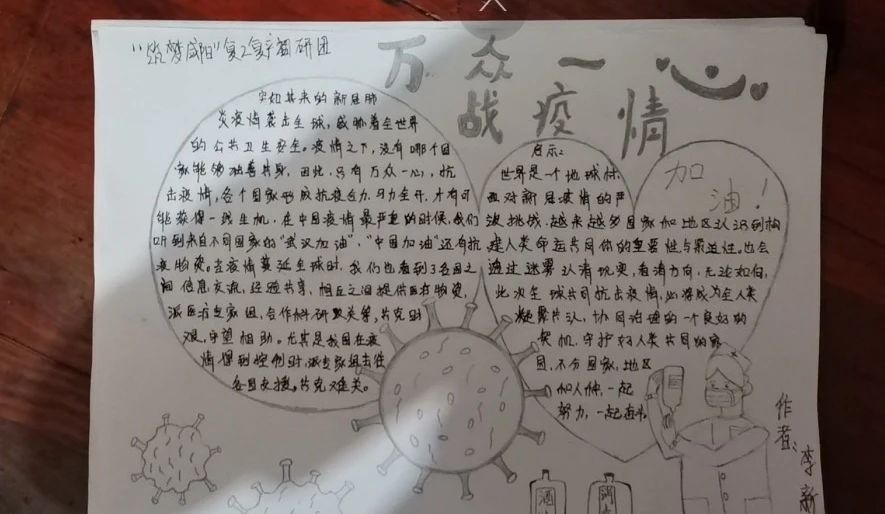 "筑梦咸阳"复工复产调研团
万众一心
战疫情
突如其来的新冠肺
炎疫情袭击全球,威胁着全世界
的公共卫生安全。疫情之下,没有哪个国
家能够独善其身,因此,只有万众一心,抗
击疫情,各个国家形成抗疫合力,马力全开,才有可
能获得一线生机。在中国疫情最严重的时候,我们
听到来自不同国家的"武汉加油","中国加油"还有抗
疫物资。当疫情蔓延全球时,我们也看到了各国之
间信息交流,经验共享,相互之间提供医疗物资,
派医疗专家组,合作科研攻关等,共克时
艰,守望相助。尤其是我国在疫
情得到控制时,派专家组去往
各国支援。共克难关。
启示:
世界是一个地球村,
面对新冠疫情的严
峻挑战,越来越多国家和地区认识到构
建人类命运共同体的重要性与紧迫性。也会
透过迷雾认清现实,看清方向,无论如何,
此次全球共同抗击疫情,必将成为全人类
凝聚共认,协同治理的一个良好的
契机,守护好人类共同的家
园,不分国家,地区
和人种,一起
努力,一起奋斗
加
油!
作者:李新
酒
消